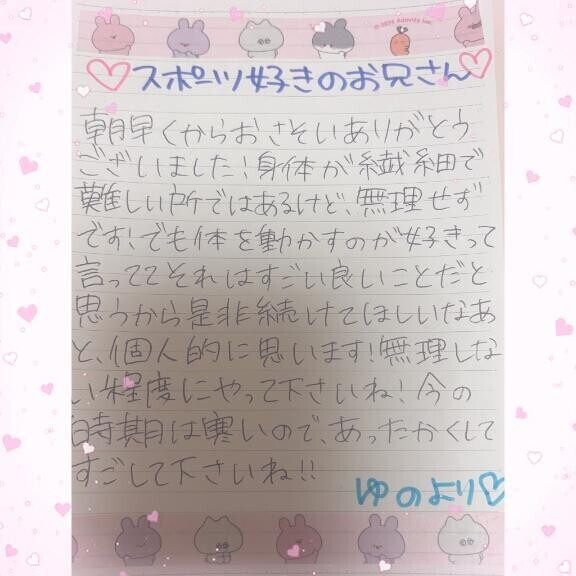 © 2024 Adovity Inc.
スポーツ好きのお兄さん
朝早くからおさそいありがとう
ございました！身体が繊細で
難しい所ではあるけど、無理せず
です！でも体を動かすのが好きって
言っててそれはすごい良いことだと
思うから是非続けてほしいなあ
と、個人的に思います！無理しな
い程度にやって下さいね！今の
時期は寒いので、あったかくして
すごして下さいね！！
ゆのより